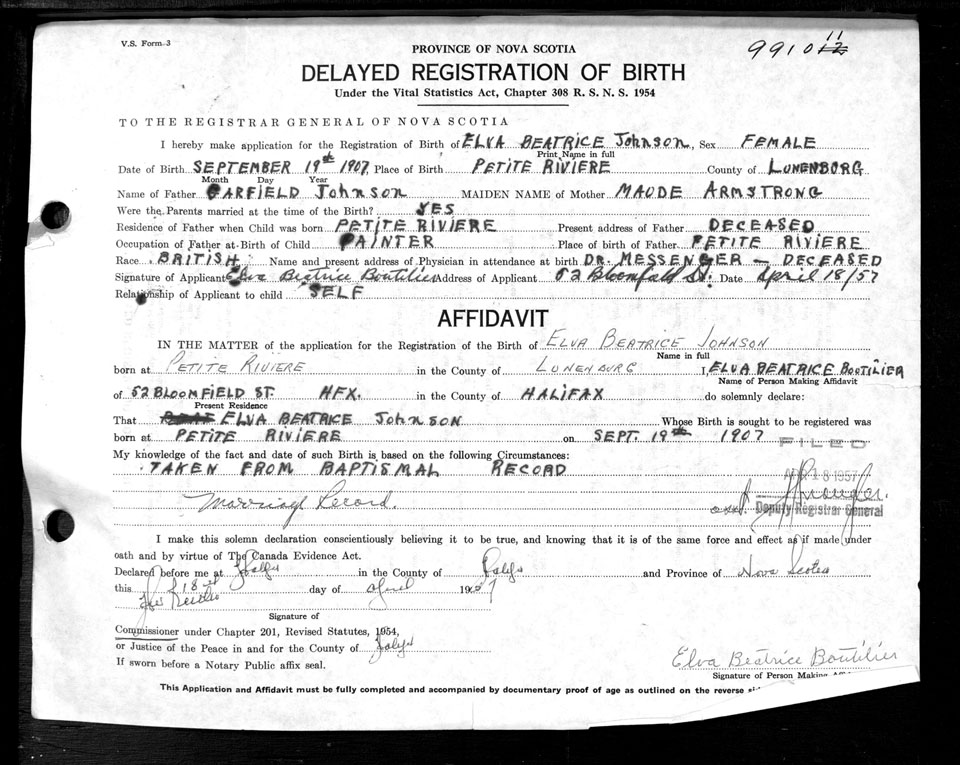 V.S. Form 3
PROVINCE OF NOVA SCOTIA
9910 11 12
DELAYED REGISTRATION OF BIRTH
Under the Vital Statistics Act, Chapter 308 R. S. N. S. 1954
TO THE REGISTRAR GENERAL OF NOVA SCOTIA
I hereby make application for the Registration of Birth of ELVA BEATRICE Johnson, Sex FEMALE
Print Name in full
Date of Birth SEPTEMBER 19th 1907, Place of Birth PETITE RIVIERE County of LUNENBURG
Month Day Year
Name of Father GARFIELD Johnson MAIDEN NAME of Mother MAUDE ARMSTRONG
Were the Parents married at the time of the Birth? YES
Residence of Father when Child was born PETITE RIVIERE Present address of Father DECEASED
Occupation of Father at Birth of Child PAINTER Place of birth of Father PETITE RIVIERE
Race BRITISH Name and present address of Physician in attendance at birth DR. MESSENGER — DECEASED
Signature of Applicant Elva Beatrice Boutilier Address of Applicant 52 Bloomfield St. Date April 18/57
Relationship of Applicant to child SELF
AFFIDAVIT
IN THE MATTER of the application for the Registration of the Birth of ELVA BEATRICE JOHNSON
Name in full
born at PETITE RIVIERE in the County of LUNENBURG I, ELVA BEATRICE BOUTILIER
Name of Person Making Affidavit
of 52 BLOOMFIELD ST. HFX. in the County of HALIFAX do solemnly declare:
Present Residence
That ELVA BEATRICE JOHNSON Whose Birth is sought to be registered was
born at PETITE RIVIERE on SEPT. 19th 1907
FILED
My knowledge of the fact and date of such Birth is based on the following Circumstances:
TAKEN FROM BAPTISMAL RECORD
18 1957
Marriage Record.
asst. Deputy Registrar General
I make this solemn declaration conscientiously believing it to be true, and knowing that it is of the same force and effect as if made under
oath and by virtue of The Canada Evidence Act.
Declared before me at Halifax in the County of Halifax and Province of Nova Scotia
this 18th day of April 1957
Signature of
Commissioner under Chapter 201, Revised Statutes, 1954,
or Justice of the Peace in and for the County of Halifax
If sworn before a Notary Public affix seal.
Elva Beatrice Boutilier
Signature of Person Making
This Application and Affidavit must be fully completed and accompanied by documentary proof of age as outlined on the reverse